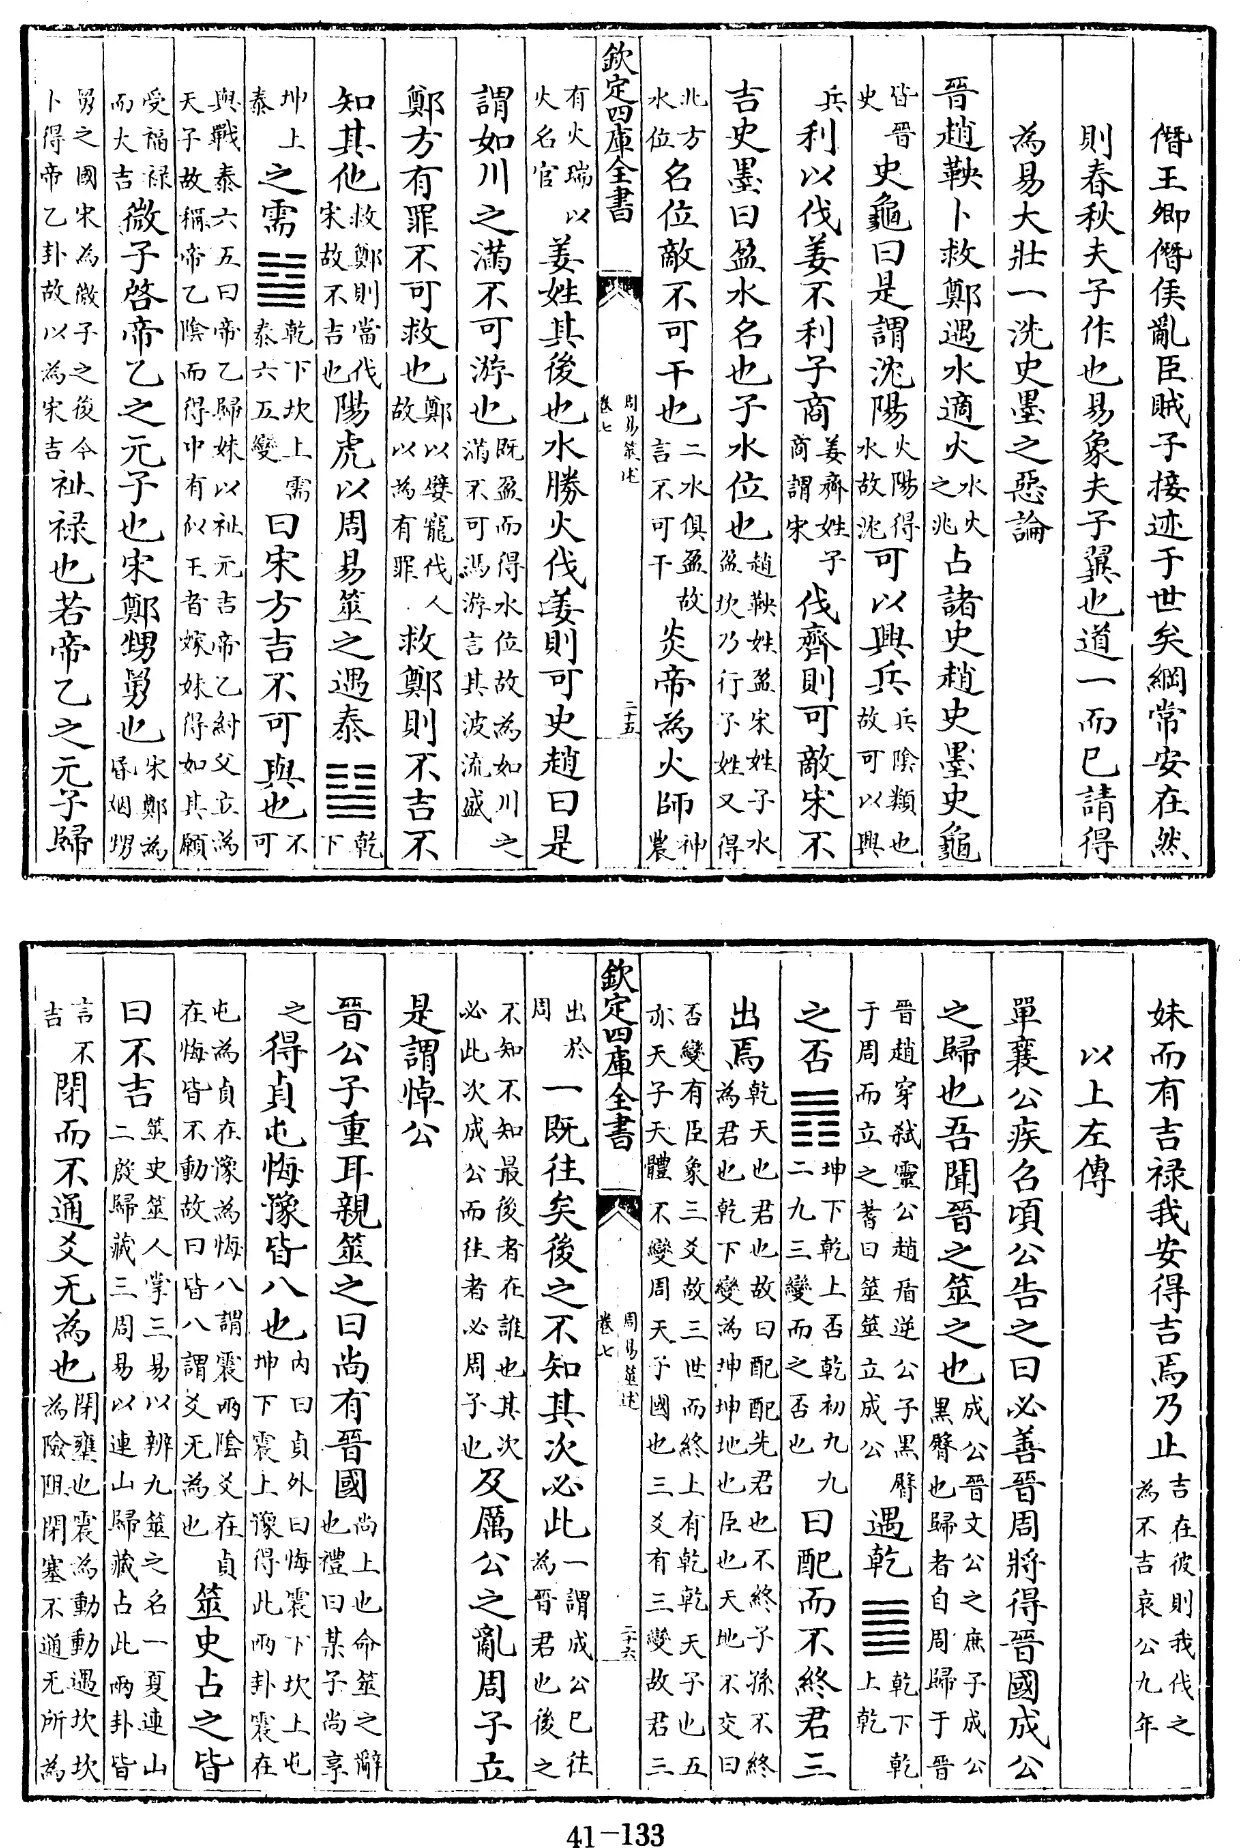 僭王卿僭侯亂臣賊子接迹于世矣綱常安在然
則春秋夫子作也易象夫子翼也道一而已請得
為易大壯一洗史墨之惡論
晉趙鞅卜救鄭遇水適火水火之兆占諸史趙史墨史龜
皆晉史史龜曰是謂沈陽火陽得水故沈可以興兵兵陰類也故可以興
兵利以伐姜不利子商姜齊姓子商謂宋伐齊則可敵宋不
吉史墨曰盈水名也子水位也趙鞅姓盈宋姓子水盈坎乃行子姓又得
北方水位名位敵不可干也二水俱盈故言不可干炎帝為火師神農
欽定四庫全書 周易筮述 卷七 二十五
有火瑞以火名官姜姓其後也水勝火伐姜則可史趙曰是
謂如川之滿不可游也既盈而得水位故為如川之滿不可馮游言其波流盛
鄭方有罪不可救也鄭以嬖寵伐人故以為有罪救鄭則不吉不
知其他救鄭則當伐宋故不吉也陽虎以周易筮之遇泰䷊乾下
坤上泰之需䷄乾下坎上需泰六五變曰宋方吉不可與也不可
與戰泰六五曰帝乙歸妹以祉元吉帝乙紂父立為天子故稱帝乙陰而得中有似王者嫁妹得如其願
受福祿而大吉微子啓帝乙之元子也宋鄭甥舅也宋鄭為昏姻甥
舅之國宋為微子之後今卜得帝乙卦故以為宋吉祉祿也若帝乙之元子歸
妹而有吉祿我安得吉焉乃止吉在彼則我伐之為不吉哀公九年
以上左傳
單襄公疾召頃公告之曰必善晉周將得晉國成公
之歸也吾聞晉之筮之也成公晉文公之庶子成公黑臀也歸者自周歸于晉
晉趙穿弒靈公趙盾逆公子黑臀于周而立之蓍曰筮筮立成公遇乾䷀乾下乾上乾
之否䷋坤下乾上否乾初九九二九三變而之否也曰配而不終君三
出焉乾天也君也故曰配配先君也不終子孫不終為君也乾下變為坤坤地也臣也天地不交曰
否變有臣象三爻故三世而終上有乾乾天子也五亦天子天體不變周天子國也三爻有三變故君三
欽定四庫全書 周易筮述 卷七 二十六
出於周一既往矣後之不知其次必此一謂成公已往為晉君也後之
不知不知最後者在誰也其次必此次成公而往者必周子也及厲公之亂周子立
是謂悼公
晉公子重耳親筮之曰尚有晉國尚上也命筮之辭也禮曰某子尚享
之得貞屯悔豫皆八也內曰貞外曰悔震下坎上屯坤下震上豫得此兩卦震在
屯為貞在豫為悔八謂震兩陰爻在貞在悔皆不動故曰皆八謂爻无為也筮史占之皆
曰不吉筮史筮人掌三易以辨九筮之名一夏連山二殷歸藏三周易以連山歸藏占此兩卦皆
言不吉閉而不通爻无為也閉壅也震為動動遇坎坎為險阻閉塞不通无所為
41-133